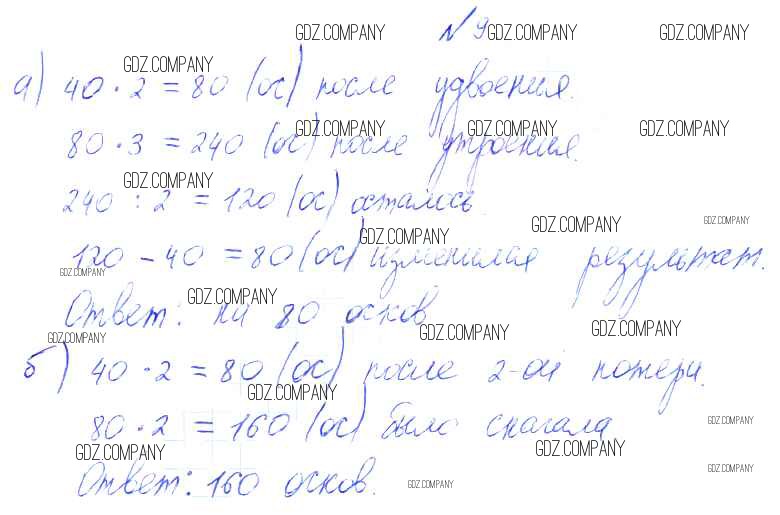 GDZ.COMPANY № 9 GDZ.COMPANY GDZ.COMPANY
GDZ.COMPANY
а) 40 · 2 = 80 (ос) после удвоения.
GDZ.COMPANY GDZ.COMPANY GDZ.COMPANY
80 · 3 = 240 (ос) после утроения.
GDZ.COMPANY
240 : 2 = 120 (ос) осталось
GDZ.COMPANY GDZ.COMPANY GDZ.COMPANY
120 - 40 = 80 (ос) изменился результат.
GDZ.COMPANY
GDZ.COMPANY
Ответ: на 80 осков
GDZ.COMPANY GDZ.COMPANY GDZ.COMPANY
б) 40 · 2 = 80 (ос) после 2-ой потери.
GDZ.COMPANY
80 · 2 = 160 (ос) было сначала
GDZ.COMPANY
GDZ.COMPANY GDZ.COMPANY
Ответ: 160 осков.
GDZ.COMPANY GDZ.COMPANY